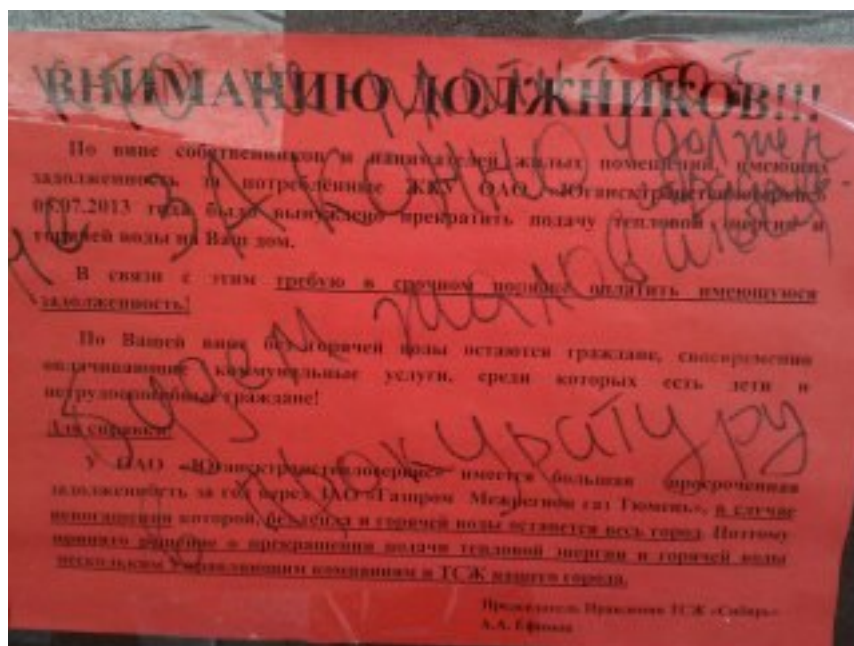 ВНИМАНИЮ ДОЛЖНИКОВ!!!
По вине собственников и нанимателей жилых помещений, имеющих
задолженность за потреблённые ЖКУ ОАО «Югансктранстеплосервис»
05.07.2013 года было вынуждено прекратить подачу тепловой энергии и
горячей воды на Ваш дом.
В связи с этим требую в срочном порядке оплатить имеющуюся
задолженность!
По Вашей вине без горячей воды остаются граждане, своевременно
оплачивающие коммунальные услуги, среди которых есть дети и
нетрудоспособные граждане!
Для справки!
У ОАО «Югансктранстеплосервис» имеется большая просроченная
задолженность за газ перед ЗАО «Газпром Межрегион газ Тюмень», в случае
непогашения которой, без тепла и горячей воды останется весь город. Поэтому
принято решение о прекращении подачи тепловой энергии и горячей воды
нескольким управляющим компаниям и ТСЖ нашего города.
Председатель Правления ТСЖ «Сибирь»
А.А. Ефимов
Кто не платит тот
и должен
не законно
Будем жаловаться
в прокуратуру